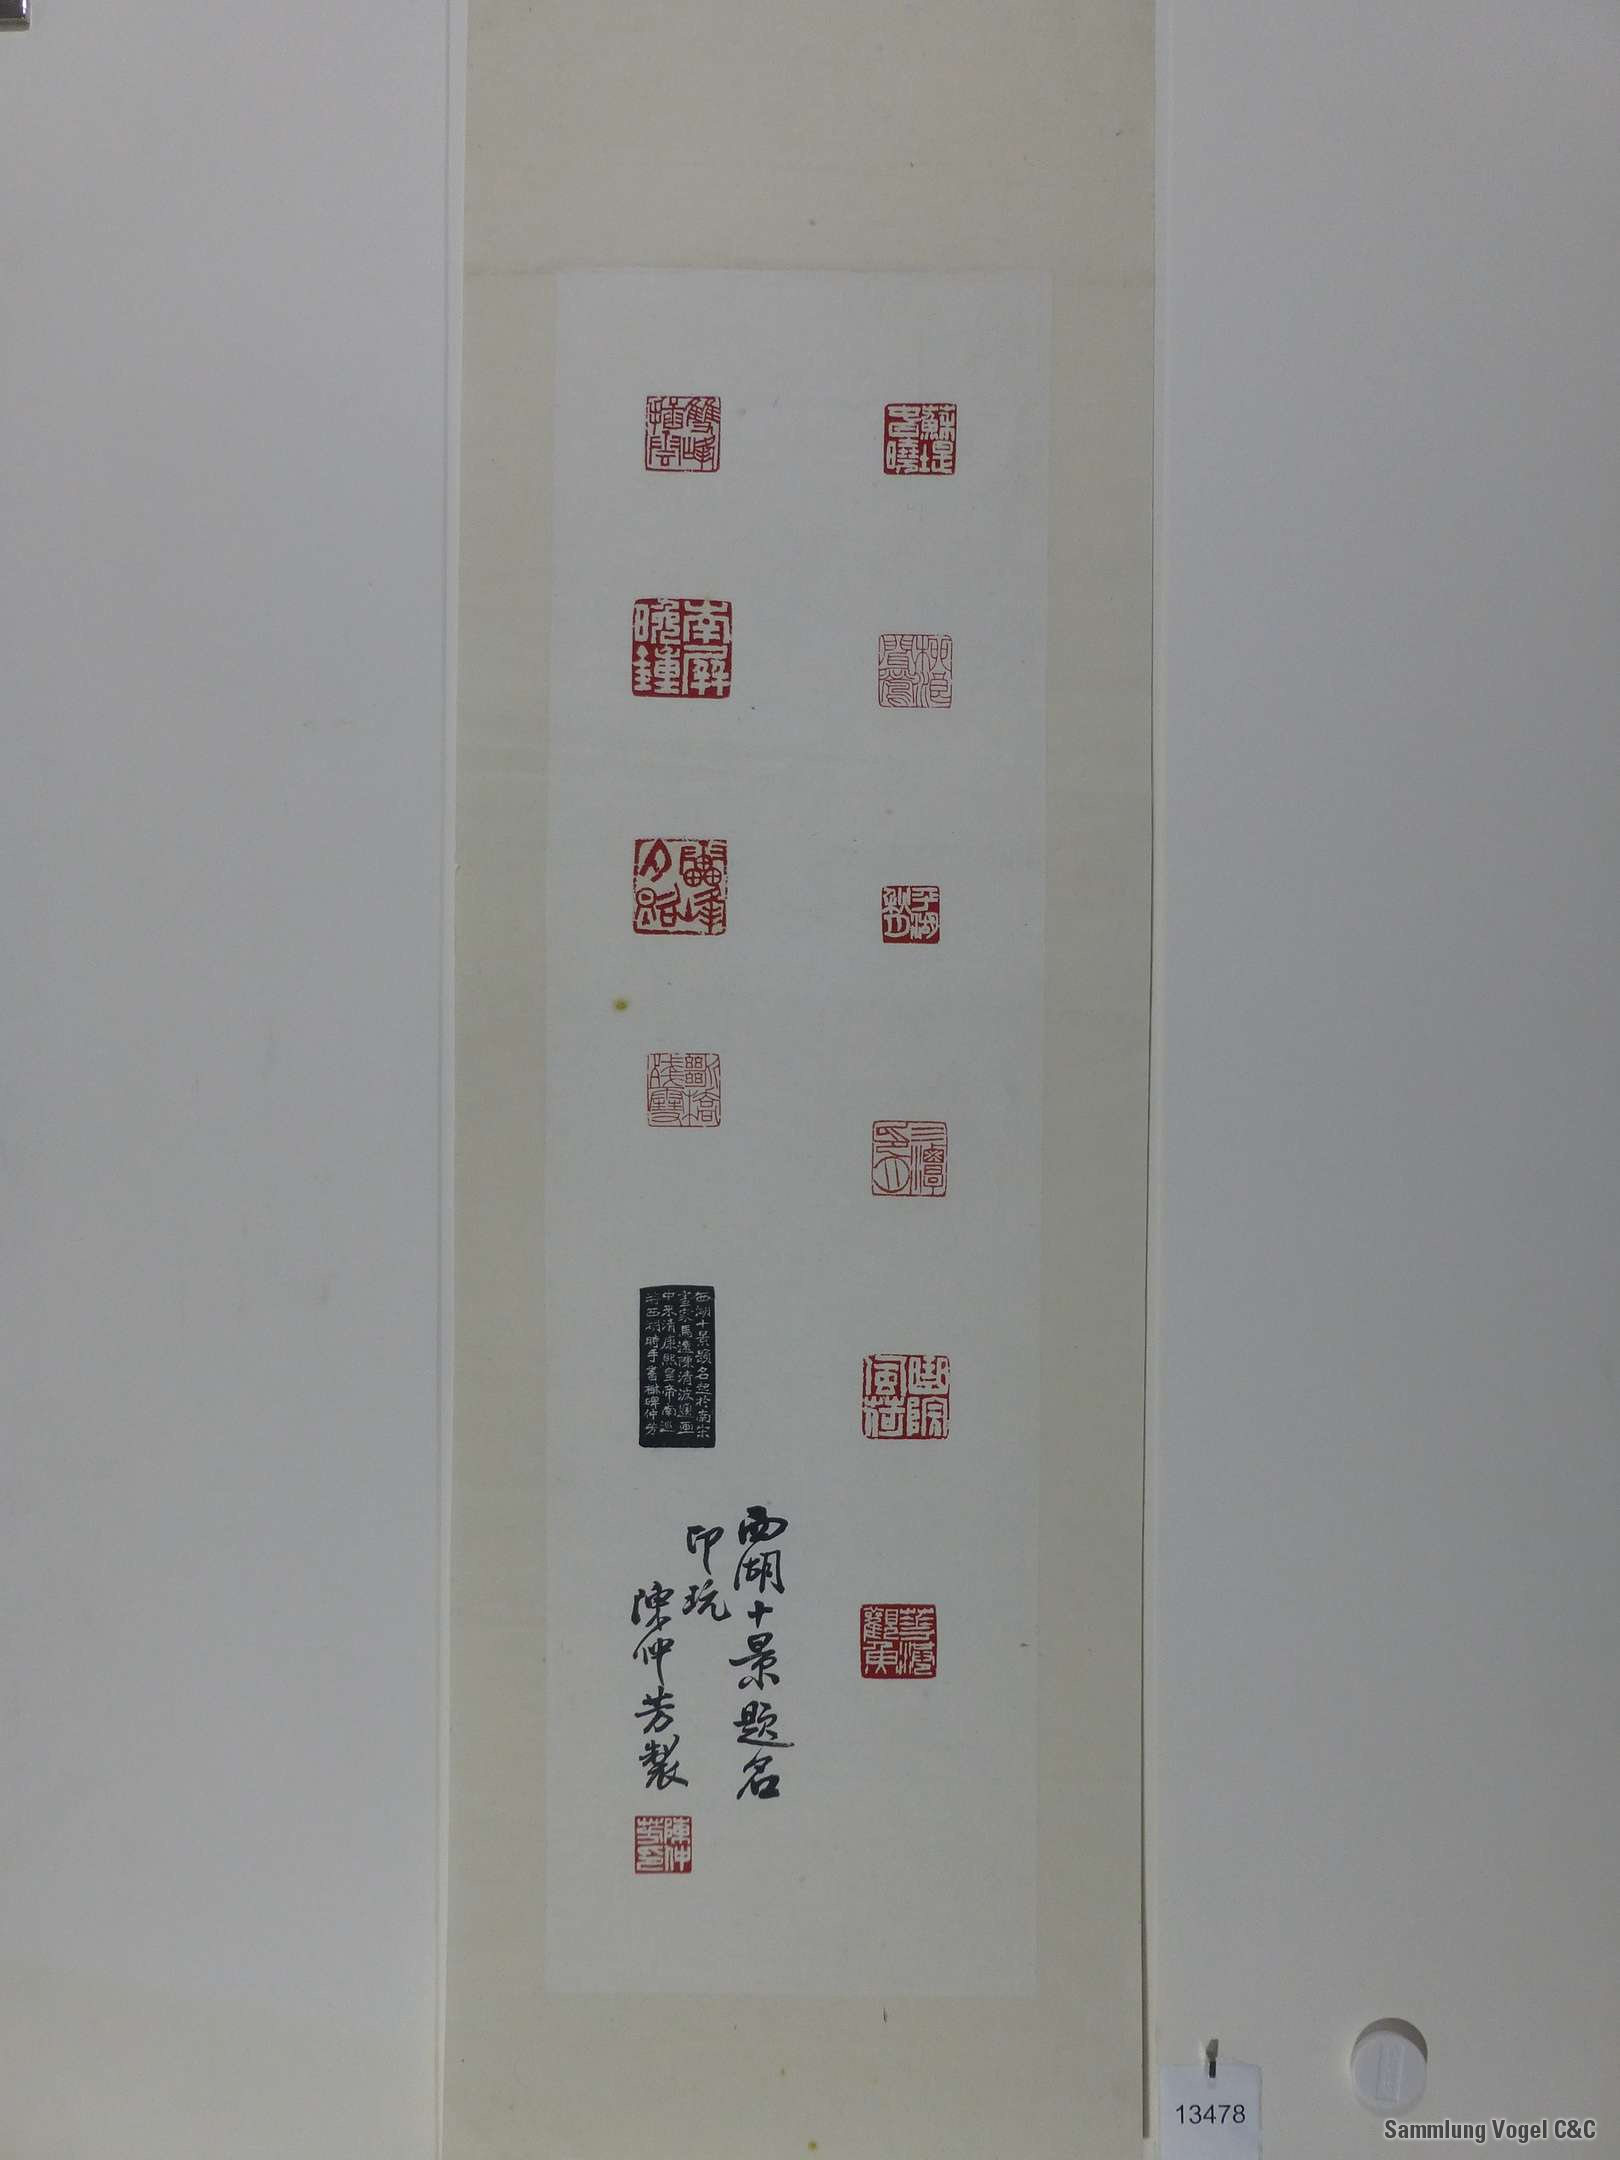 蘇堤春曉
柳浪聞鶯
平湖秋月
三潭印月
曲院風荷
花港觀魚
雙峰插雲
南屏晚鍾
雷峰夕照
斷橋殘雪
西湖十景題名起於南宋
畫家馬遠陳清波通画
中来清康熙皇帝南巡
西湖時手書樹碑仲芳
西湖十景題名
印玩
陳仲芳製
陳仲芳印
13478
Sammlung Vogel C&C